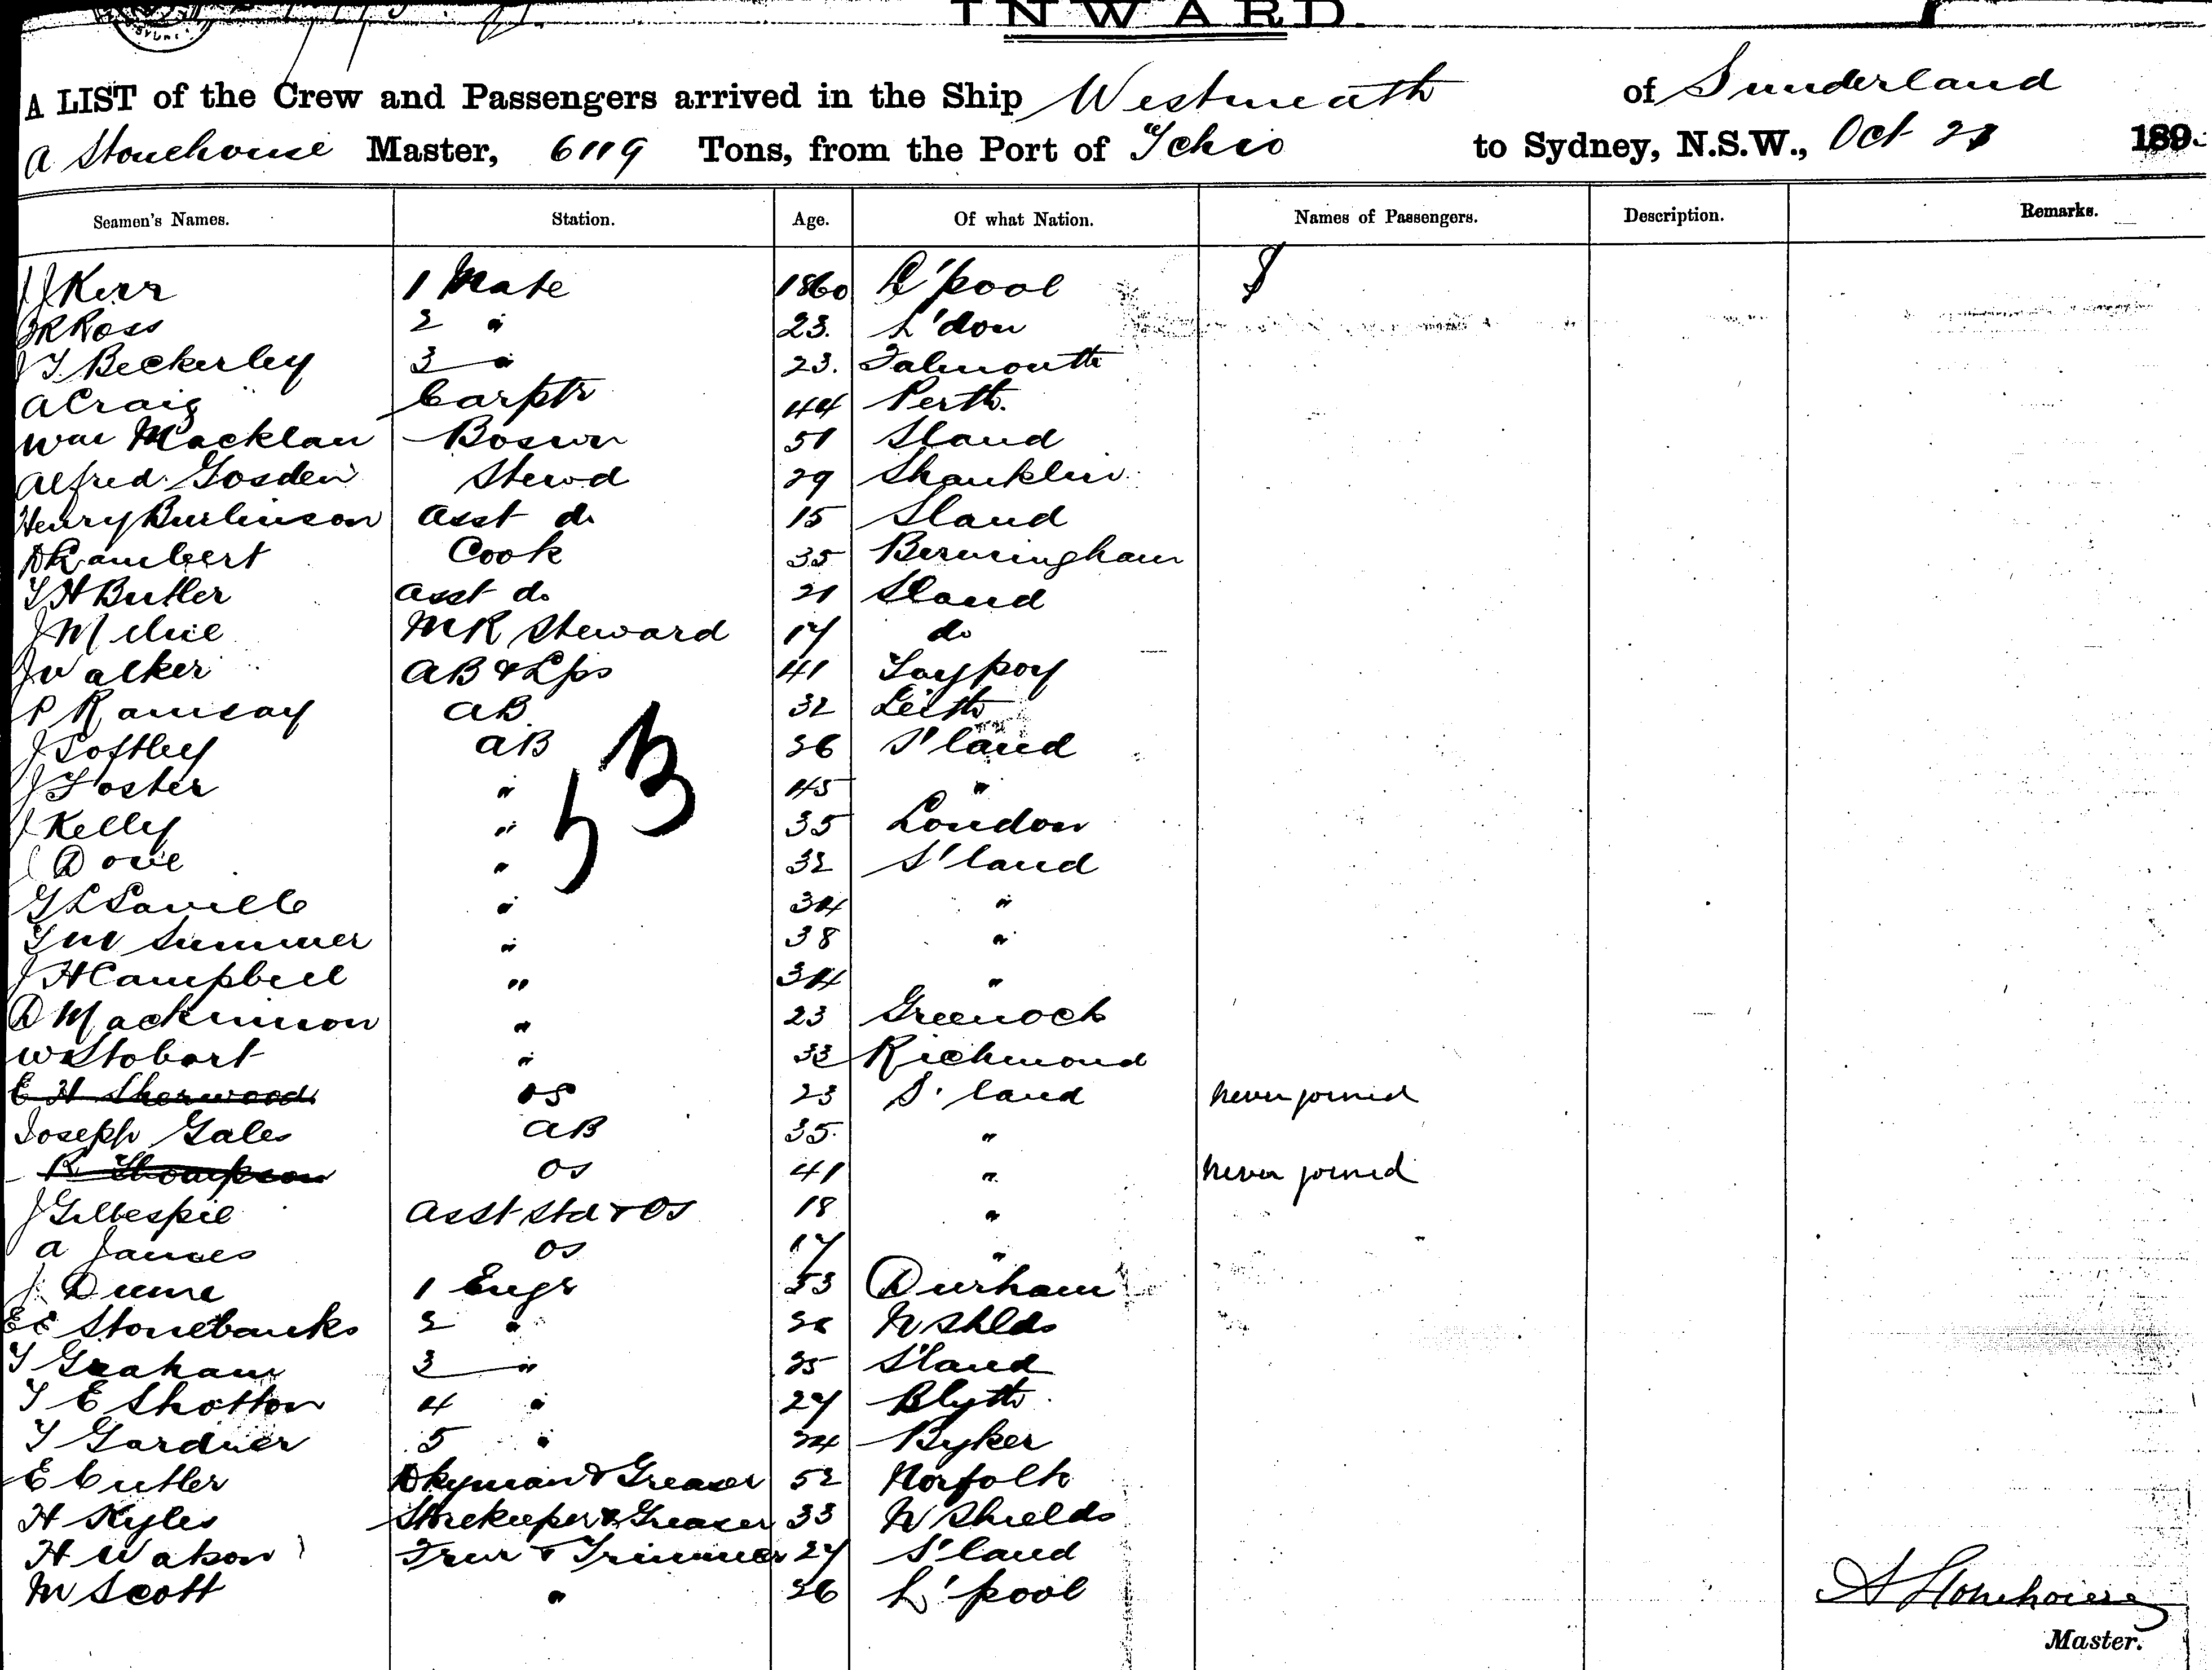 INWARD.
A LIST of the Crew and Passengers arrived in the Ship Westmeath of Sunderland
A Stonehouse Master, 6119 Tons, from the Port of Tchio to Sydney, N.S.W., Oct 189
Seamen's Names. Station. Age. Of what Nation. Names of Passengers. Description. Remarks.
J J Kerr 1 Mate 1860 L'pool
Ross 2 " 23. L'don
J T Beckerley 3 " 23. Falmouth
A Craig Carptr 44 Perth.
Wm Macklan Boswn 51 Sland
Alfred Gosden Stewd 29 Shanklin
Henry Burlinson Asst do 15 Sland
D Lambert Cook 35 Birmingham
T H Butler Asst do 21 Sland
J Milne MR Steward 17 do
J Walker AB & Lps 41 Tayport
P Ramsay AB 32 Leith
J Softley AB 26 S'land
J Foster " 45 "
J Kelly " 35 London
J Dove " 32 S'land
G L Saville " 34 "
T W Summer " 38 "
J H Campbell " 34 "
D Mackinnon " 23 Greenock
W Stobart " 33 Richmond
E H Sherwood OS 23 S'land never joined
Joseph Gales AB 35 "
R Thompson OS 41 " never joined
J Gillespie Asst Std & OS 18 "
A James OS 17 "
J. Dunne 1 Engr 53 Durham
E E Stonebanks 2 " N Shlds
T Graham 3 " 25 S'land
T E Shotton 4 " 27 Blyth
T Gardner 5 " 24 Byker
E Cutler Dkyman & Greaser 52 Norfolk
H Kyles Storekeeper & Greaser 33 N Shields
H Watson Frmr & Trimmer 27 S'land
M Scott " 26 L'pool
53
A Stonehouse
Master.